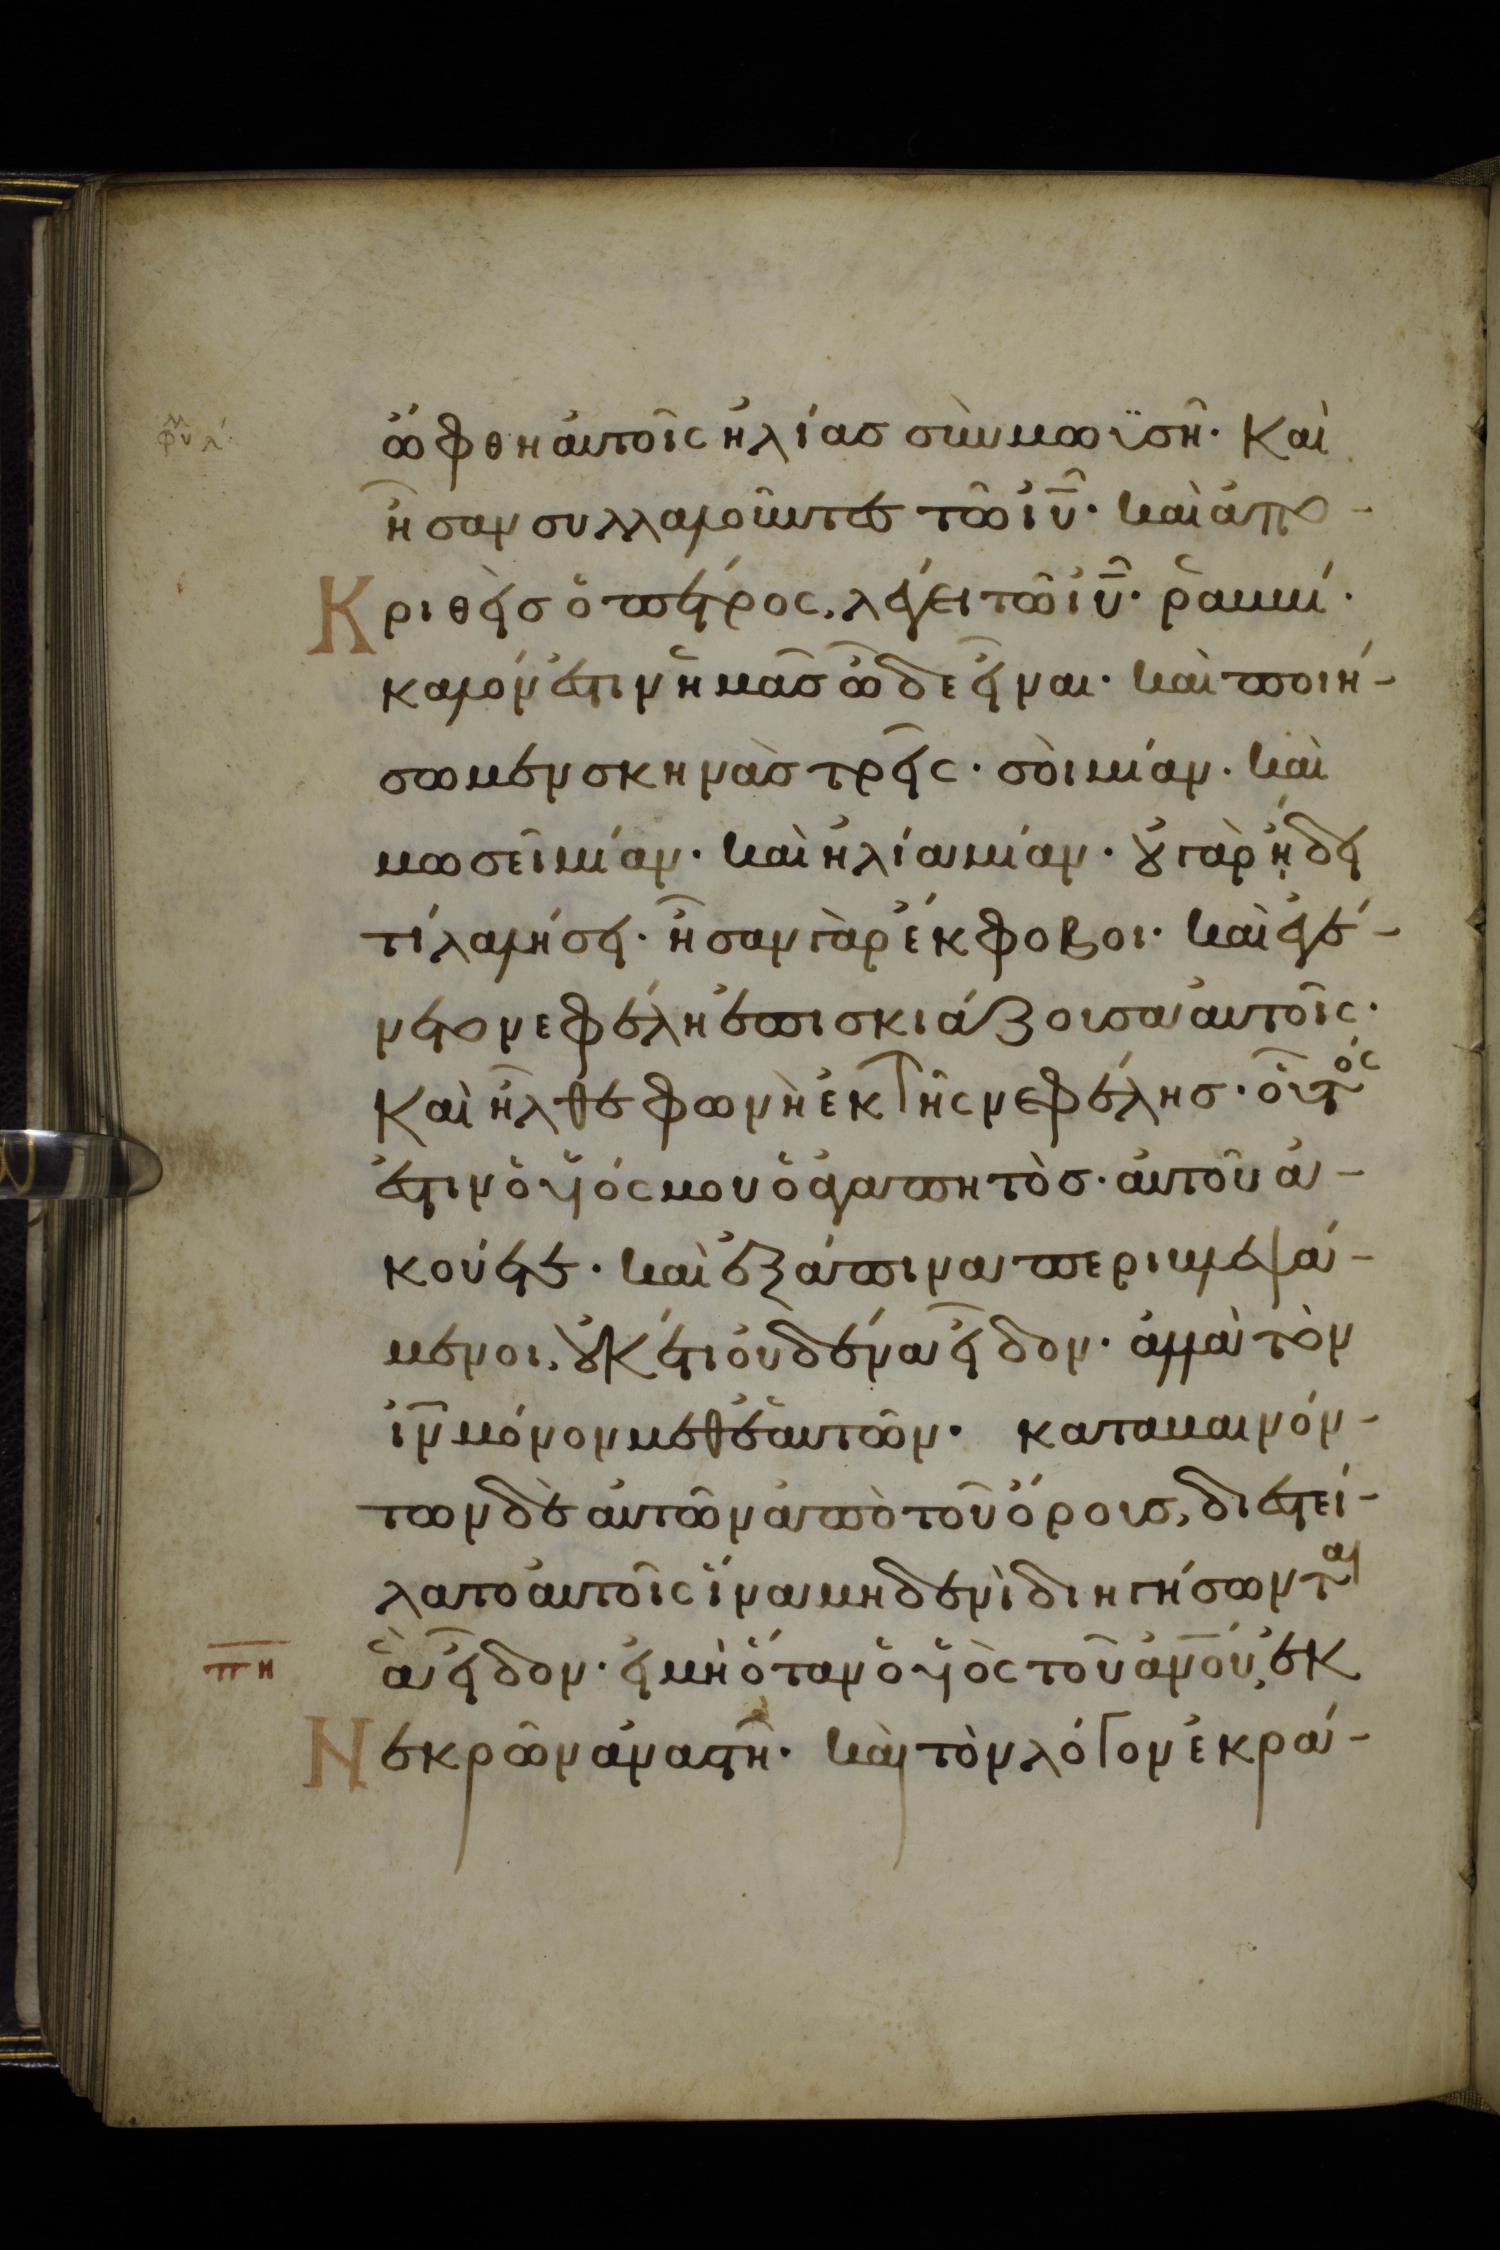 ὤφθη αὐτοῖς ἠλίας σὺν μωϋσῆ· Καὶ
ἦσαν συλλαλοῦντες τῶ ἰῦ· καὶ ἀπο-
Κριθεὶς ὁ πέτρος, λέγει τῶ ἰῦ· ῥαββί·
καλόν ἐστιν ἡμᾶς ὧδε εἶναι· καὶ ποιή-
σωμεν σκηνὰς τρεῖς· σοὶ μίαν· καὶ
μωσεῖ μίαν· καὶ ἠλία μίαν· οὐ γὰρ ἤδει
τί λαλήσει· ἦσαν γὰρ ἔκφοβοι· καὶ ἐγέ-
νετο νεφέλη ἐπισκιάζουσα αὐτοῖς·
Καὶ ἦλθε φωνὴ ἐκ τῆς νεφέλης· οὗτός
ἐστιν ὁ υἱός μου ὁ ἀγαπητὸς· αὐτοῦ ἀ-
κούετε· καὶ ἐξάπινα περιβλεψά-
μενοι, οὐκέτι οὐδένα εἶδον· ἀλλὰ τὸν
ἰν μόνον μεθ ἑαυτῶν· καταβαινόν-
των δὲ αὐτῶν ἀπὸ τοῦ ὄρους, διεστεί-
λατο αὐτοῖς ἵνα μηδενὶ διηγήσωνται
πη ἃ εἶδον· εἰ μὴ ὅταν ὁ υἱὸς τοῦ ἀνου, ἐκ
Νεκρῶν ἀναστῆ· καὶ τὸν λόγον ἐκρά-